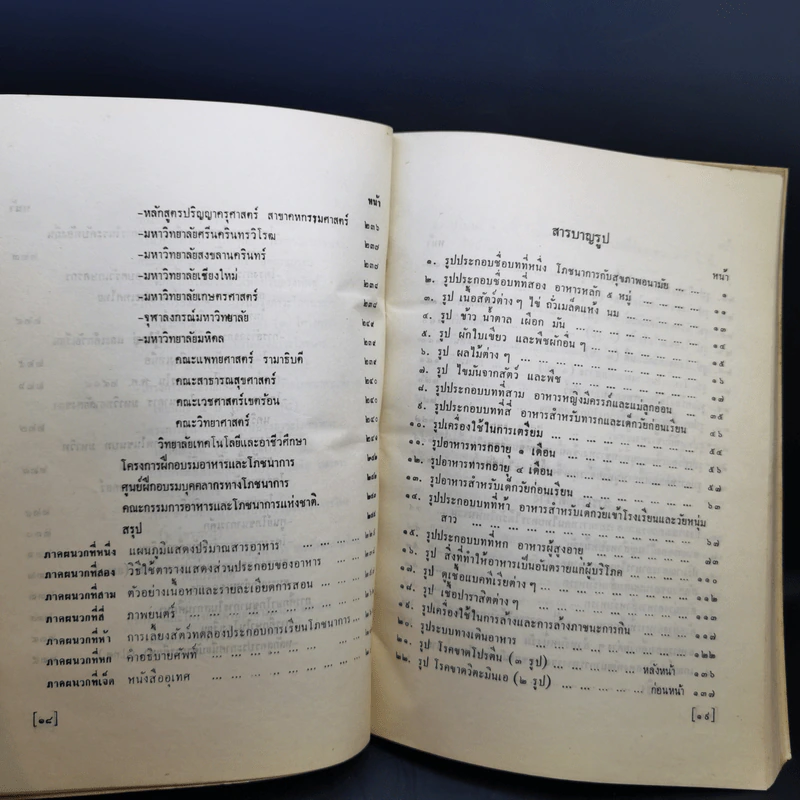 หน้า
-หลักสูตรปริญญาครุศาสตร์ สาขาคหกรรมศาสตร์ ๒๓๖
-มหาวิทยาลัยศรีนครินทรวิโรฒ ๒๓๗
-มหาวิทยาลัยสงขลานครินทร์ ๒๓๗
-มหาวิทยาลัยเชียงใหม่ ๒๓๘
-มหาวิทยาลัยเกษตรศาสตร์ ๒๓๘
-จุฬาลงกรณ์มหาวิทยาลัย
-มหาวิทยาลัยมหิดล
คณะแพทยศาสตร์ รามาธิบดี
คณะสาธารณสุขศาสตร์ ๒๔๐
คณะเวชศาสตร์เขตร้อน ๒๔๐
คณะวิทยาศาสตร์ ๒๔๐
วิทยาลัยเทคโนโลยีและอาชีวศึกษา
โครงการฝึกอบรมอาหารและโภชนาการ
ศูนย์ฝึกอบรมบุคลากรทางโภชนาการ
คณะกรรมการอาหารและโภชนาการแห่งชาติ.
สรุป
ภาคผนวกที่หนึ่ง แผนภูมิแสดงปริมาณสารอาหาร ... ... ... ...
ภาคผนวกที่สอง วิธีใช้ตารางแสดงส่วนประกอบของอาหาร
ภาคผนวกที่สาม ตัวอย่างเนื้อหาและรายละเอียดการสอน ... ...
ภาคผนวกที่สี่ ภาพยนตร์ ... ... ... ... ... ...
ภาคผนวกที่ห้า การเลี้ยงสัตว์ทดลองประกอบการเรียนโภชนาการ ...
ภาคผนวกที่หก คำอธิบายศัพท์ ... ... ... ... ... ...
ภาคผนวกที่เจ็ด หนังสืออุเทศ ... ... ... ... ... ...
[๑๘]
สารบาญรูป
หน้า
๑. รูปประกอบชื่อบทที่หนึ่ง โภชนาการกับสุขภาพอนามัย ... ... ๑
๒. รูปประกอบชื่อบทที่สอง อาหารหลัก ๕ หมู่ ... ... ...
๓. รูป เนื้อสัตว์ต่าง ๆ ไข่ ถั่วเมล็ดแห้ง นม ... ... ... ๑๑
๔. รูป ข้าว น้ำตาล เผือก มัน ... ... ... ...
๕. รูป ผักใบเขียว และพืชผักอื่น ๆ ... ... ... ...
๖. รูป ผลไม้ต่าง ๆ ... ... ... ... ... ...
๗. รูป ไขมันจากสัตว์ และพืช ... ... ... ...
๘. รูปประกอบบทที่สาม อาหารหญิงมีครรภ์และแม่ลูกอ่อน ... ๓๕
๙. รูปประกอบบทที่สี่ อาหารสำหรับทารกและเด็กวัยก่อนเรียน ๔๖
๑๐. รูปเครื่องใช้ในการเตรียม ... ... ... ... ...
๑๑. รูปอาหารทารกอายุ ๑ เดือน ... ... ... ...
๑๒. รูปอาหารทารกอายุ ๔ เดือน ... ... ... ...
๑๓. รูปอาหารสำหรับเด็กวัยก่อนเรียน ... ... ... ... ๕๗
๑๔. รูปประกอบบทที่ห้า อาหารสำหรับเด็กวัยเข้าโรงเรียนและวัยหนุ่ม
สาว ... ... ... ... ... ... ๖๗
๑๕. รูปประกอบบทที่หก อาหารผู้สูงอายุ ... ... ...
๑๖. รูป สิ่งที่ทำให้อาหารเป็นอันตรายแก่ผู้บริโภค ... ... ๑๑๐
๑๗. รูป ดูเชื้อแบคทีเรียต่าง ๆ ... ... ... ... ๑๑๒
๑๘. รูป เชื้อปาราสิตต่าง ๆ ... ... ... ... ...
๑๙. รูปเครื่องใช้ในการล้างและการล้างภาชนะการกิน ... ... ๑๑๗
๒๐. รูประบบทางเดินอาหาร ... ... ... ... ... ๑๒๒
๒๑. รูป โรคขาดโปรตีน (๓ รูป) ... ... ... หลังหน้า ๑๓๖
๒๒. รูป โรคขาดวิตะมินเอ (๒ รูป) ... ... ... ... ก่อนหน้า ๑๓๗
[๑๙]